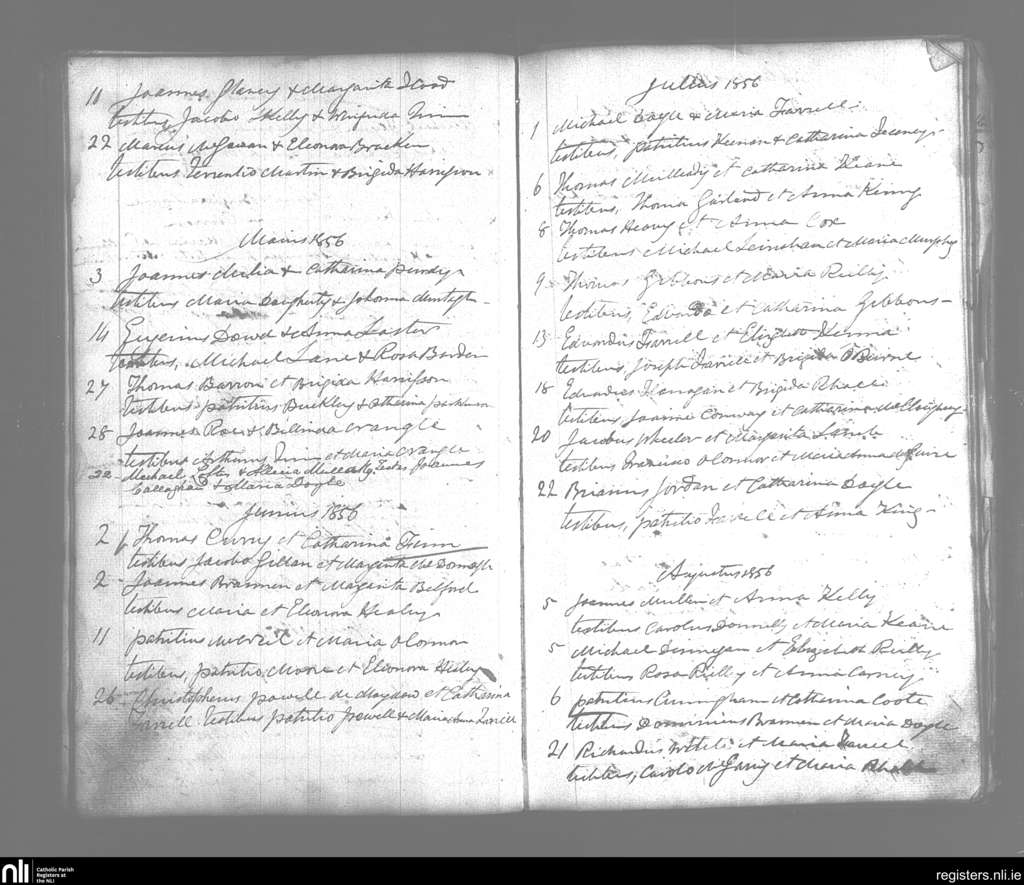 11 Joannes Glancy & Margarita Flood
testibus Jacobo Skelly & Winifrida Finn
22 Marcus McGawan & Eleonora Bracken
testibus Terrentio Martin & Brigida Harrisson
Maius 1856
3 Joannes Melia & Catharina
testibus Maria Daugherty & Johanna
14 Eugenius Dowd & Anna Laster
testibus, Michael Lane & Rosa Barden
27 Thomas Barron et Brigida Harrisson
testibus patritius Buckley &
28 Joannes Rae & Bellinda Crangle
testibus Arthurus Finn et Maria Crangle
22 Michael & Alicia Testes Joannes
Callaghan & Maria Doyle
Junius 1856
2 Thomas Curry et Catharina Finn
testibus Jacobo Gillan et Margarita
2 Joannes Brannan et Margarita Belford
testibus Maria et Eleonora Healy
11 patritius et Maria O Connor
testibus, patritio Moore et Eleonora Healy
26 Christopherus powell de et Catharina
Farrell testibus patritio powell & Maria Anna Farrell
Julius 1856
1 Michael Doyle & Maria Farrell
testibus, patritius Keenan & Catharina
6 Thomas et Catharina Keane
testibus, Thoma Garland et Anna Kenny
8 Thomas Heavy et Anna Cox
testibus Michael et Maria Murphy
9 Thomas Gibbons et Maria Reilly
testibus, Edwardo et Catharina Gibbons
13 Edwardus Farrell et Elizabeth Kenna
testibus, Joseph Farrell et Brigida O Beirne
18 Edwardus Flanagan et Brigida
testibus Joanne Conway et Catharina
20 Jacobus Wheeler et Margarita Lamb
testibus Francisco O Connor et Maria Anna
22 Briannus Jordan et Catharina Doyle
testibus, patritio Farrell et Anna King
Augustus 1856
5 Joannes Mullen et Anna Kelly
testibus Carolus Donnelly et Maria Keane
5 Michael Dunnigan et Elizabeth Reilly
testibus Rosa Reilly et Anna Carney
6 patritius Cunningham et Catharina Coote
testibus Dominicus Brannan et Maria Doyle
21 Richardus White et Maria Farrell
testibus, Carolo et Maria
nli
Catholic Parish
Registers at
the NLI
registers.nli.ie